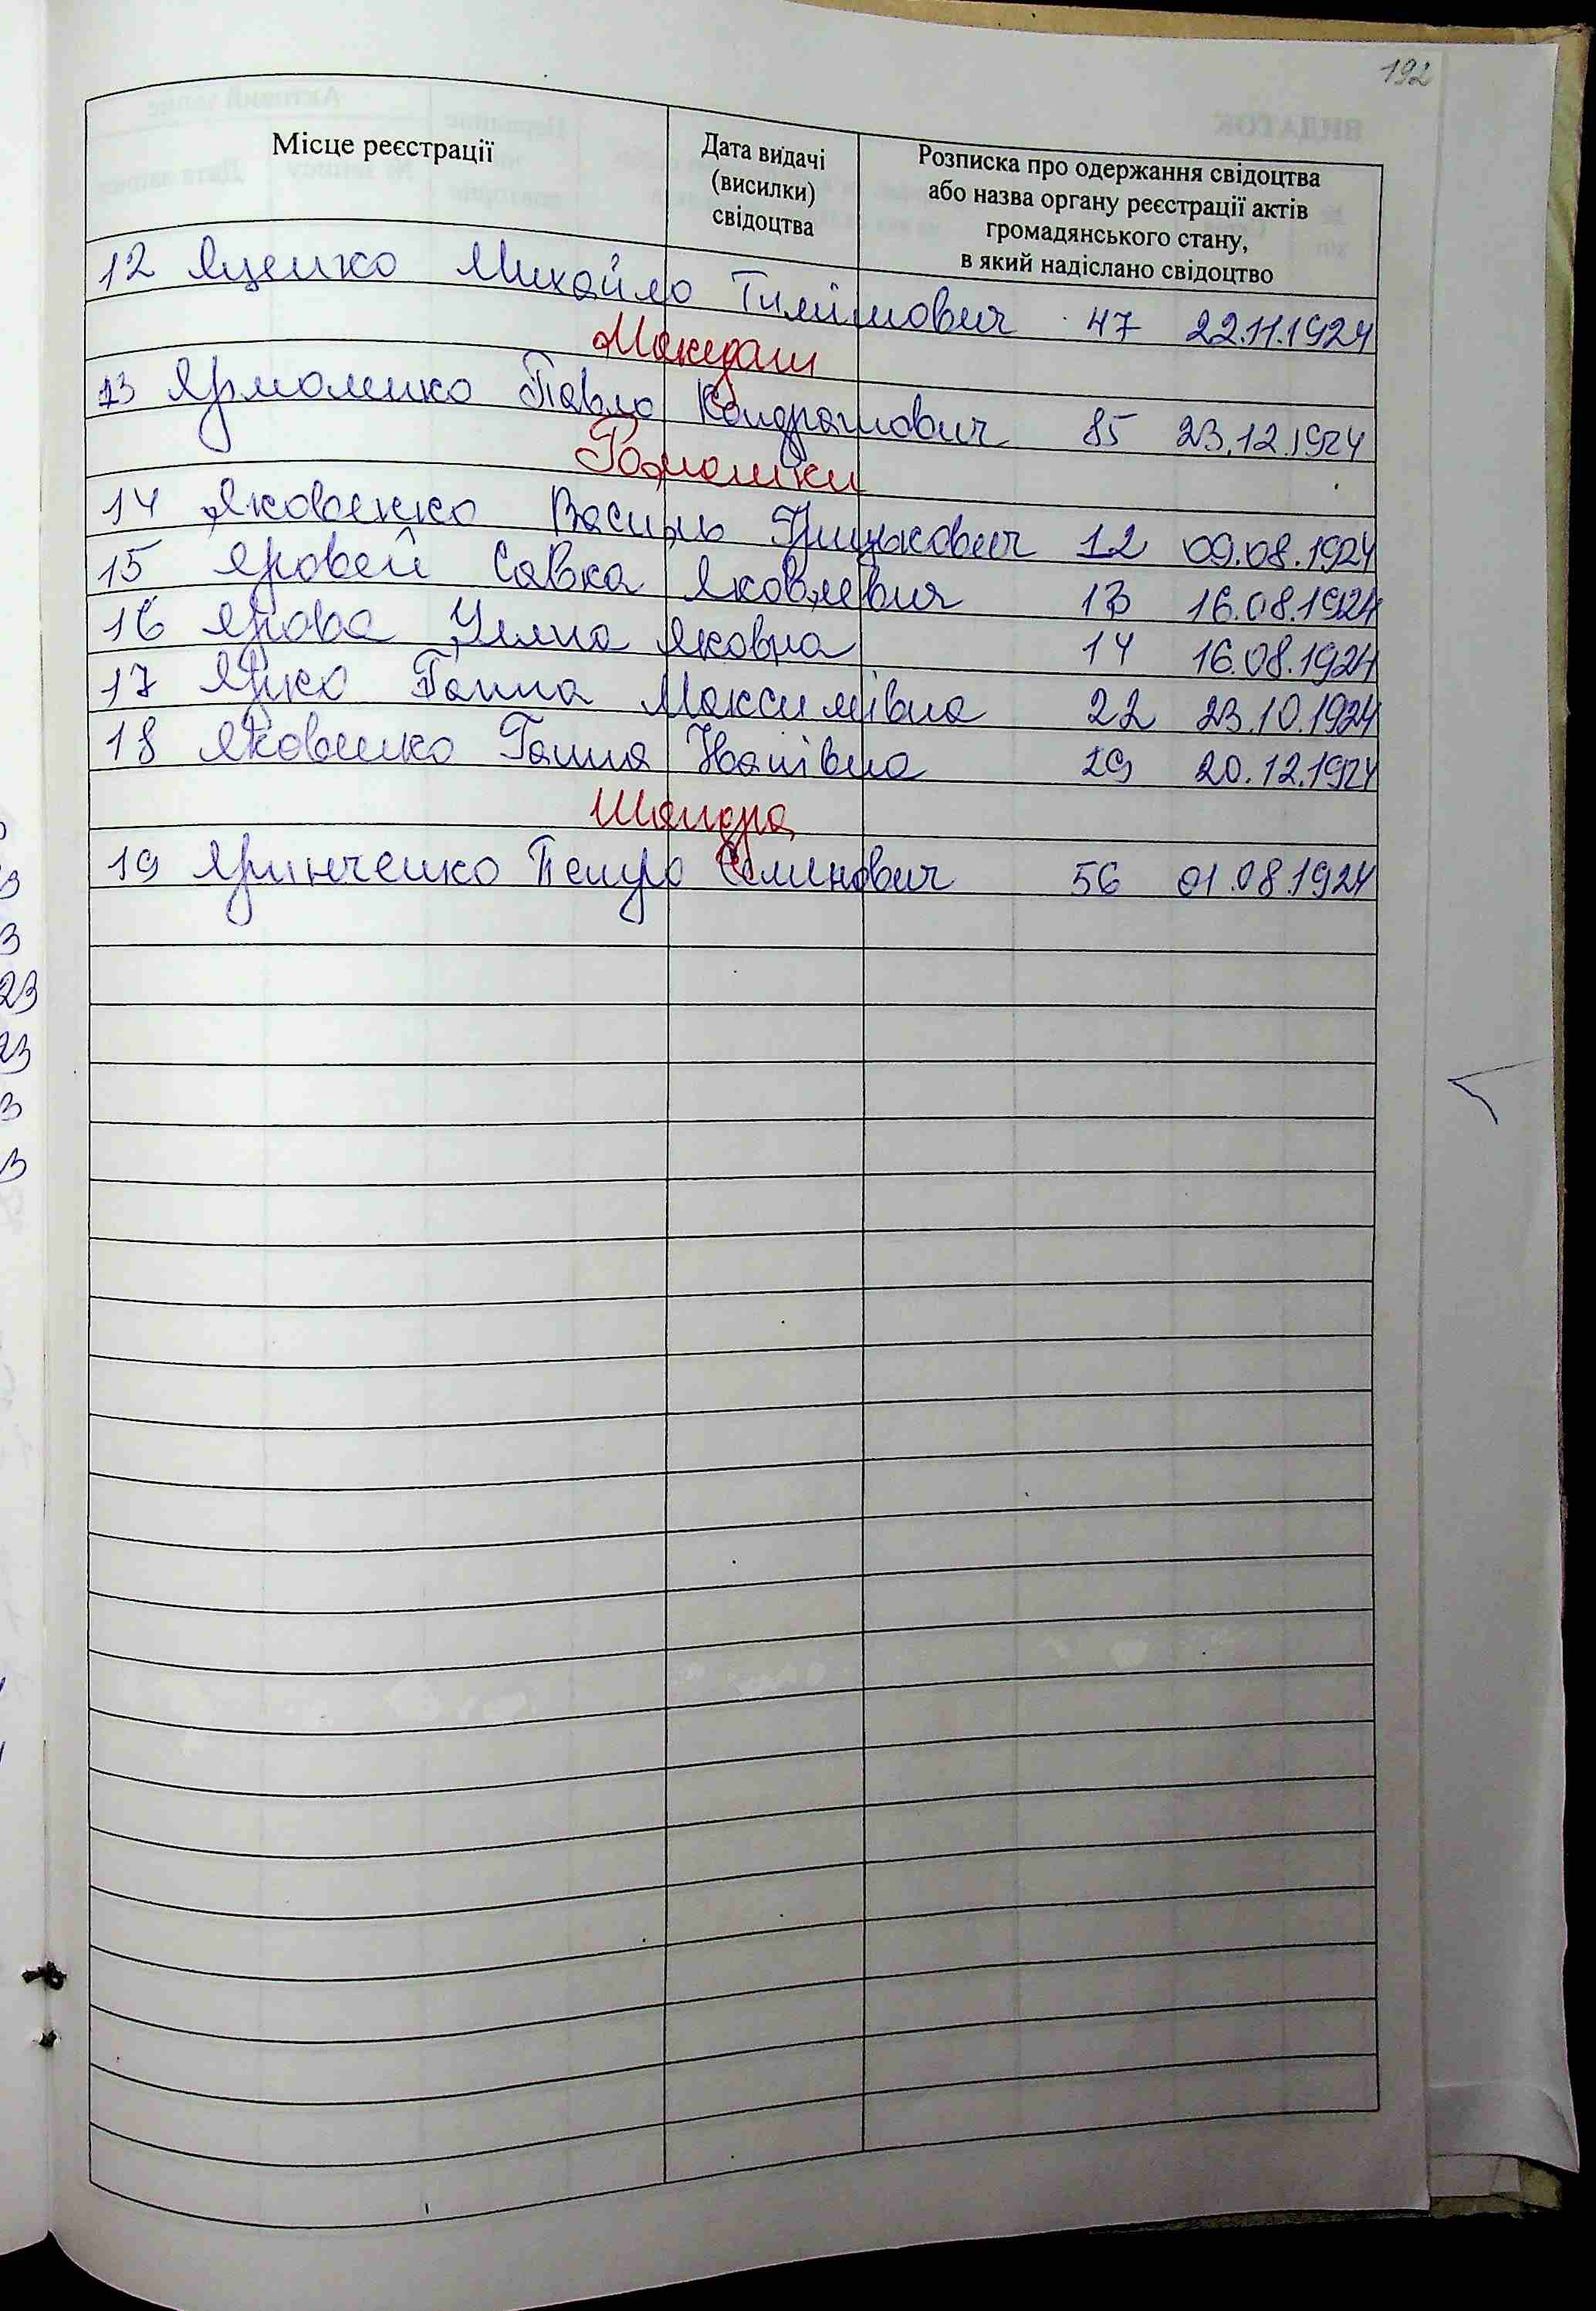 192
Місце реєстрації
Дата видачі
(висилки)
свідоцтва
Розписка про одержання свідоцтва
або назва органу реєстрації актів
громадянського стану,
в який надіслано свідоцтво
12 Яценко Михайло Тимімович 47 22.11.1924
Македани
13 Ярмоленко Павло Кондратович 85 23.12.1924
14 Яковенко Василь Грицькович 12 09.08.1924
15 Яровей Савка Яковлевич 13 16.08.1924
16 Ярова Уляна Яковна 14 16.08.1924
17 Ярко Ганна Максимівна 22 23.10.1924
18 Яковенко Ганна Іванівна 29 20.12.1924
Шандра
19 Яринченко Петро Семенович 56 01.08.1924
3
3
23
23
3
3